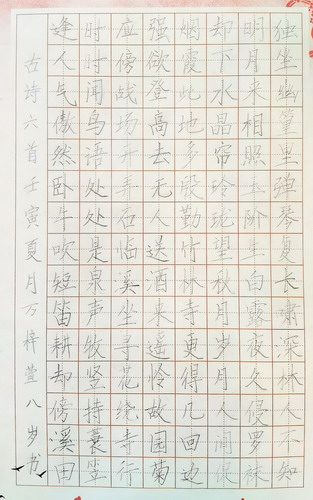 独坐幽篁里弹琴复长啸深林人不知
明月来相照玉阶生白露夜久侵罗袜
却下水晶帘玲珑望秋月岁月人间促
烟霞此地多殷勤竹林寺更得几回过
强欲登高去无人送酒来遥怜故园菊
应傍战场开弄石临溪坐寻花绕寺行
时时闻鸟语处处是泉声牧竖持蓑笠
逢人气傲然卧牛吹短笛耕却傍溪田
古诗六首壬寅夏月万梓萱八岁书